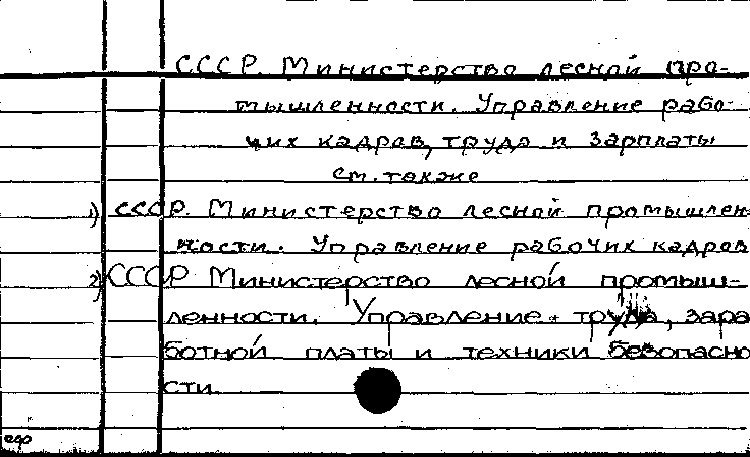 СССР. Министерство лесной про-
мышленности. Управление рабо-
чих кадров, труда и зарплаты
см. также
1) СССР. Министерство лесной промышлен-
ности. Управление рабочих кадров
2) СССР Министерство лесной промыш-
ленности. Управление труда, зара
ботной платы и техники безопасно
сти